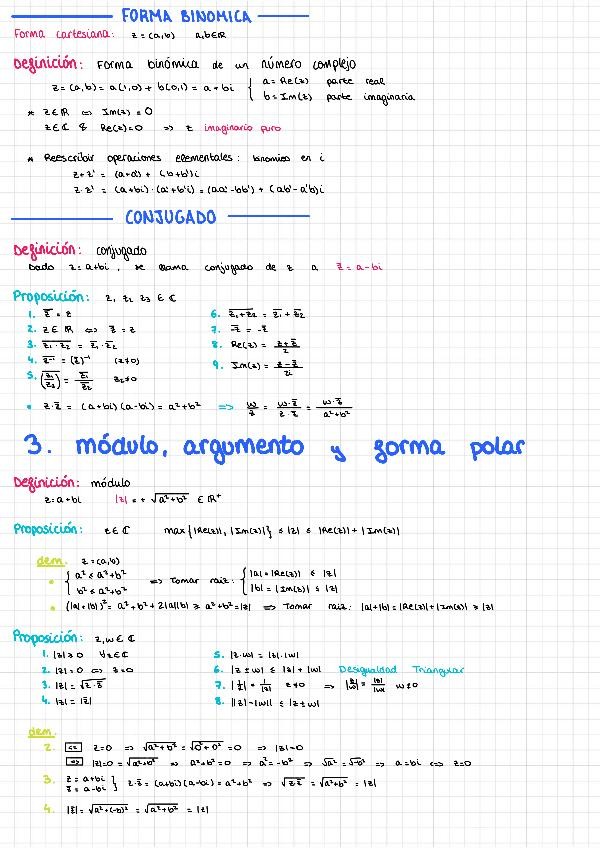 FORMA BINOMICA
Forma cartesiana: z = (a,b) a,b∈ℝ
Definición: Forma binómica de un número complejo
z = (a,b) = a(1,0) + b(0,1) = a + bi { a = Re(z) parte real
b = Im(z) parte imaginaria
* z∈ℝ ⇔ Im(z) = 0
z∈ℂ & Re(z)=0 ⇒ z imaginario puro
* Reescribir operaciones elementales: binomios en i
z+z' = (a+a') + (b+b')i
z·z' = (a+bi)·(a'+b'i) = (aa'-bb') + (ab'-a'b)i
CONJUGADO
Definición: conjugado
Dado z=a+bi, se llama conjugado de z a z̄ = a-bi
Proposición: z, z₁ z₂ z₃ ∈ ℂ
1. z̿ = z
2. z∈ℝ ⇔ z̄ = z
3. \overline{z₁·z₂} = z̄₁·z̄₂
4. \overline{z⁻¹} = (z̄)⁻¹ (z≠0)
5. \overline{(z₁/z₂)} = z̄₁/z̄₂ z₂≠0
6. \overline{z₁+z₂} = z̄₁ + z̄₂
7. \overline{-z} = -z̄
8. Re(z) = (z+z̄)/2
9. Im(z) = (z-z̄)/2i
• z·z̄ = (a+bi)(a-bi) = a²+b² ⇒ w/z = w·z̄/z·z̄ = w·z̄/a²+b²
3. módulo, argumento y forma polar
Definición: módulo
z=a+bi |z| = +√(a²+b²) ∈ℝ⁺
Proposición: z∈ℂ max{|Re(z)|, |Im(z)|} ≤ |z| ≤ |Re(z)| + |Im(z)|
dem. z=(a,b)
• { a² ≤ a²+b²
b² ≤ a²+b² ⇒ Tomar raiz: { |a|=|Re(z)| ≤ |z|
|b|=|Im(z)| ≤ |z|
• (|a|+|b|)² = a²+b²+2|a||b| ≥ a²+b²=|z| ⇒ Tomar raiz: |a|+|b| = |Re(z)|+|Im(z)| ≥ |z|
Proposición: z,w∈ℂ
1. |z| ≥ 0 ∀z∈ℂ
2. |z| = 0 ⇔ z=0
3. |z| = √(z·z̄)
4. |z| = |z̄|
5. |z·w| = |z|·|w|
6. |z±w| ≤ |z|+|w| Desigualdad Triangular
7. |1/z| = 1/|z| z≠0 ⇒ |z/w| = |z|/|w| w≠0
8. ||z|-|w|| ≤ |z±w|
dem.
2. ⇐ z=0 ⇒ √(a²+b²) = √(0²+0²) = 0 ⇒ |z|=0
⇒ |z|=0 = √(a²+b²) ⇒ a²+b²=0 ⇒ a²=-b² ⇒ √a² = √-b² ⇒ a=bi ⇔ z=0
3. z = a+bi
z̄ = a-bi } z·z̄ = (a+bi)(a-bi) = a²+b² ⇒ √(z·z̄) = √(a²+b²) = |z|
4. |z̄| = √(a²+(-b)²) = √(a²+b²) = |z|